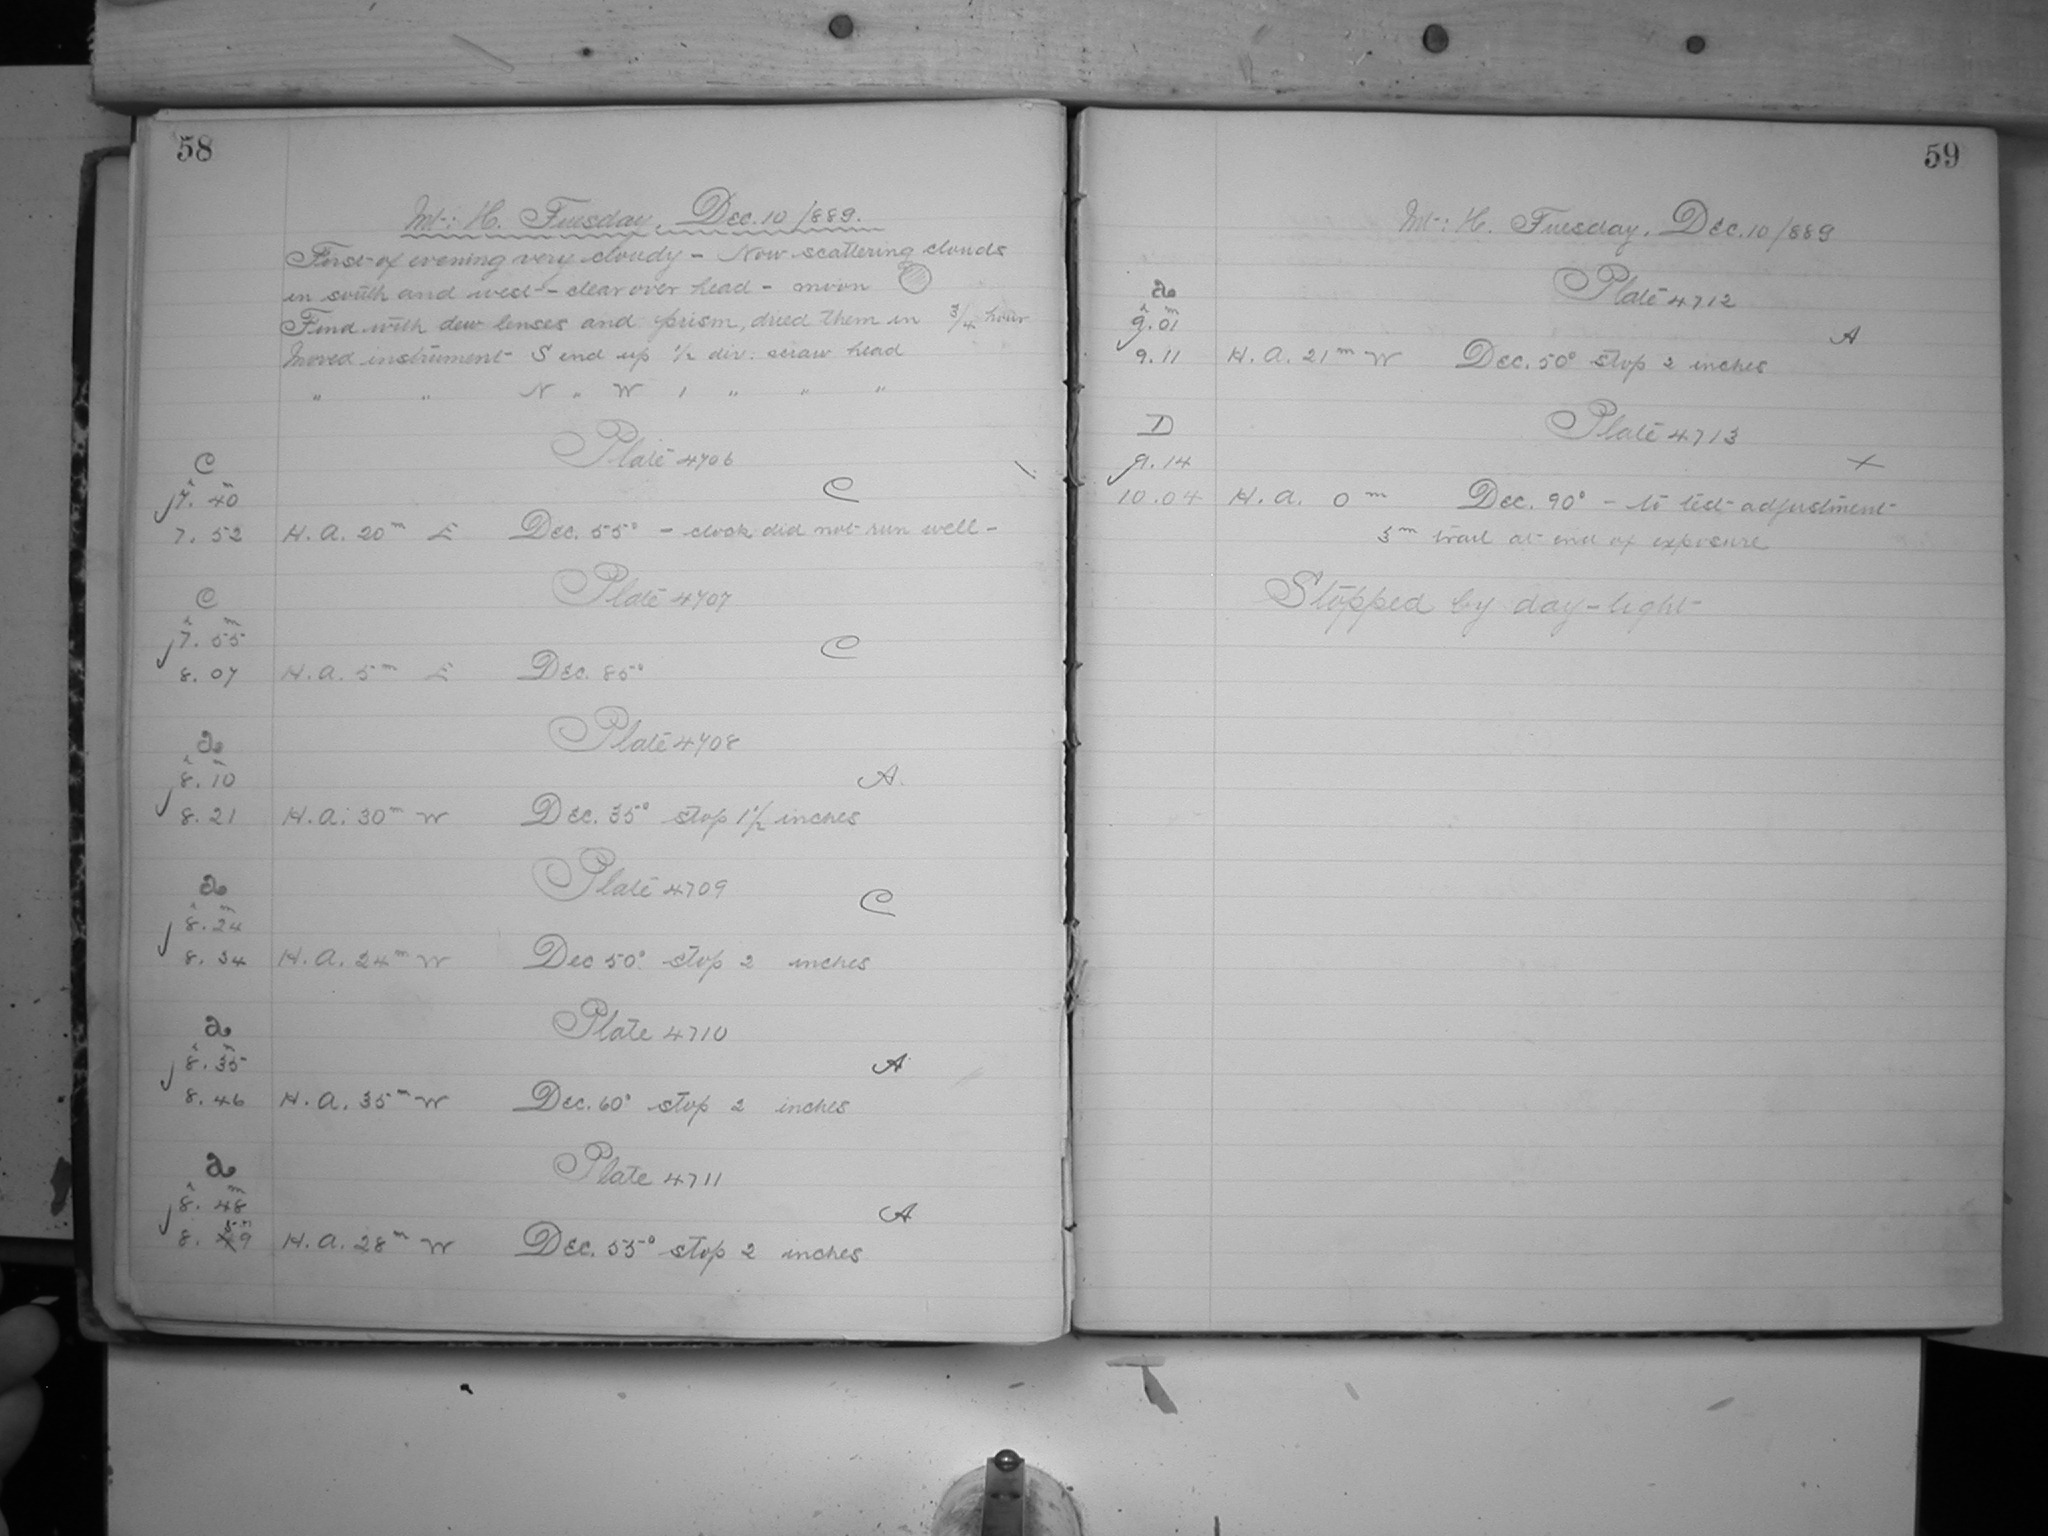 58
Mt: H. Tuesday, Dec. 10 1889.
First of evening very cloudy - Now scattering clouds
in south and west - clear over head - moon
Find with dew lenses and prism, dried them in 3/4 hour
Moved instrument S end up 1/2 div. scraw head
" " N " W 1 " " "
C Plate 4706
7.h 40m C
7. 52 H. A. 20m E Dec. 55° - clock did not run well -
C Plate 4707
7.h 55m C
8. 07 H. A. 5m E Dec. 85°
a Plate 4708
8.h 10m A.
8. 21 H. A. 30m W Dec. 35° stop 1 1/2 inches
a Plate 4709
8.h 24m C
8. 34 H. A. 24m W Dec 50° stop 2 inches
a Plate 4710
8.h 35m A
8. 46 H. A. 35m W Dec. 60° stop 2 inches
a Plate 4711
8.h 48m A
8. 59 H. A. 28m W Dec. 55° stop 2 inches
59
Mt: H. Tuesday, Dec. 10 1889
a Plate 4712
9.h 01m A
9. 11 H. A. 21m W Dec. 50° stop 2 inches
D Plate 4713
9. 14 X
10. 04 H. A. 0m Dec. 90° - to test adjustment
5m trail at end of exposure
Stopped by day-light